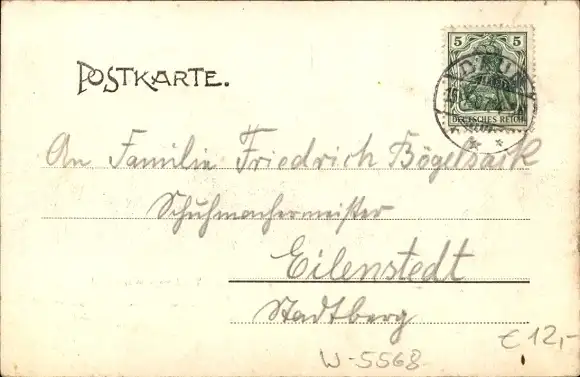 POSTKARTE.
5
DEUTSCHES REICH
An Familie Friedrich Bögelsack
Schuhmachermeister
Eilenstedt
Stadtberg
€ 12,-
W-5568